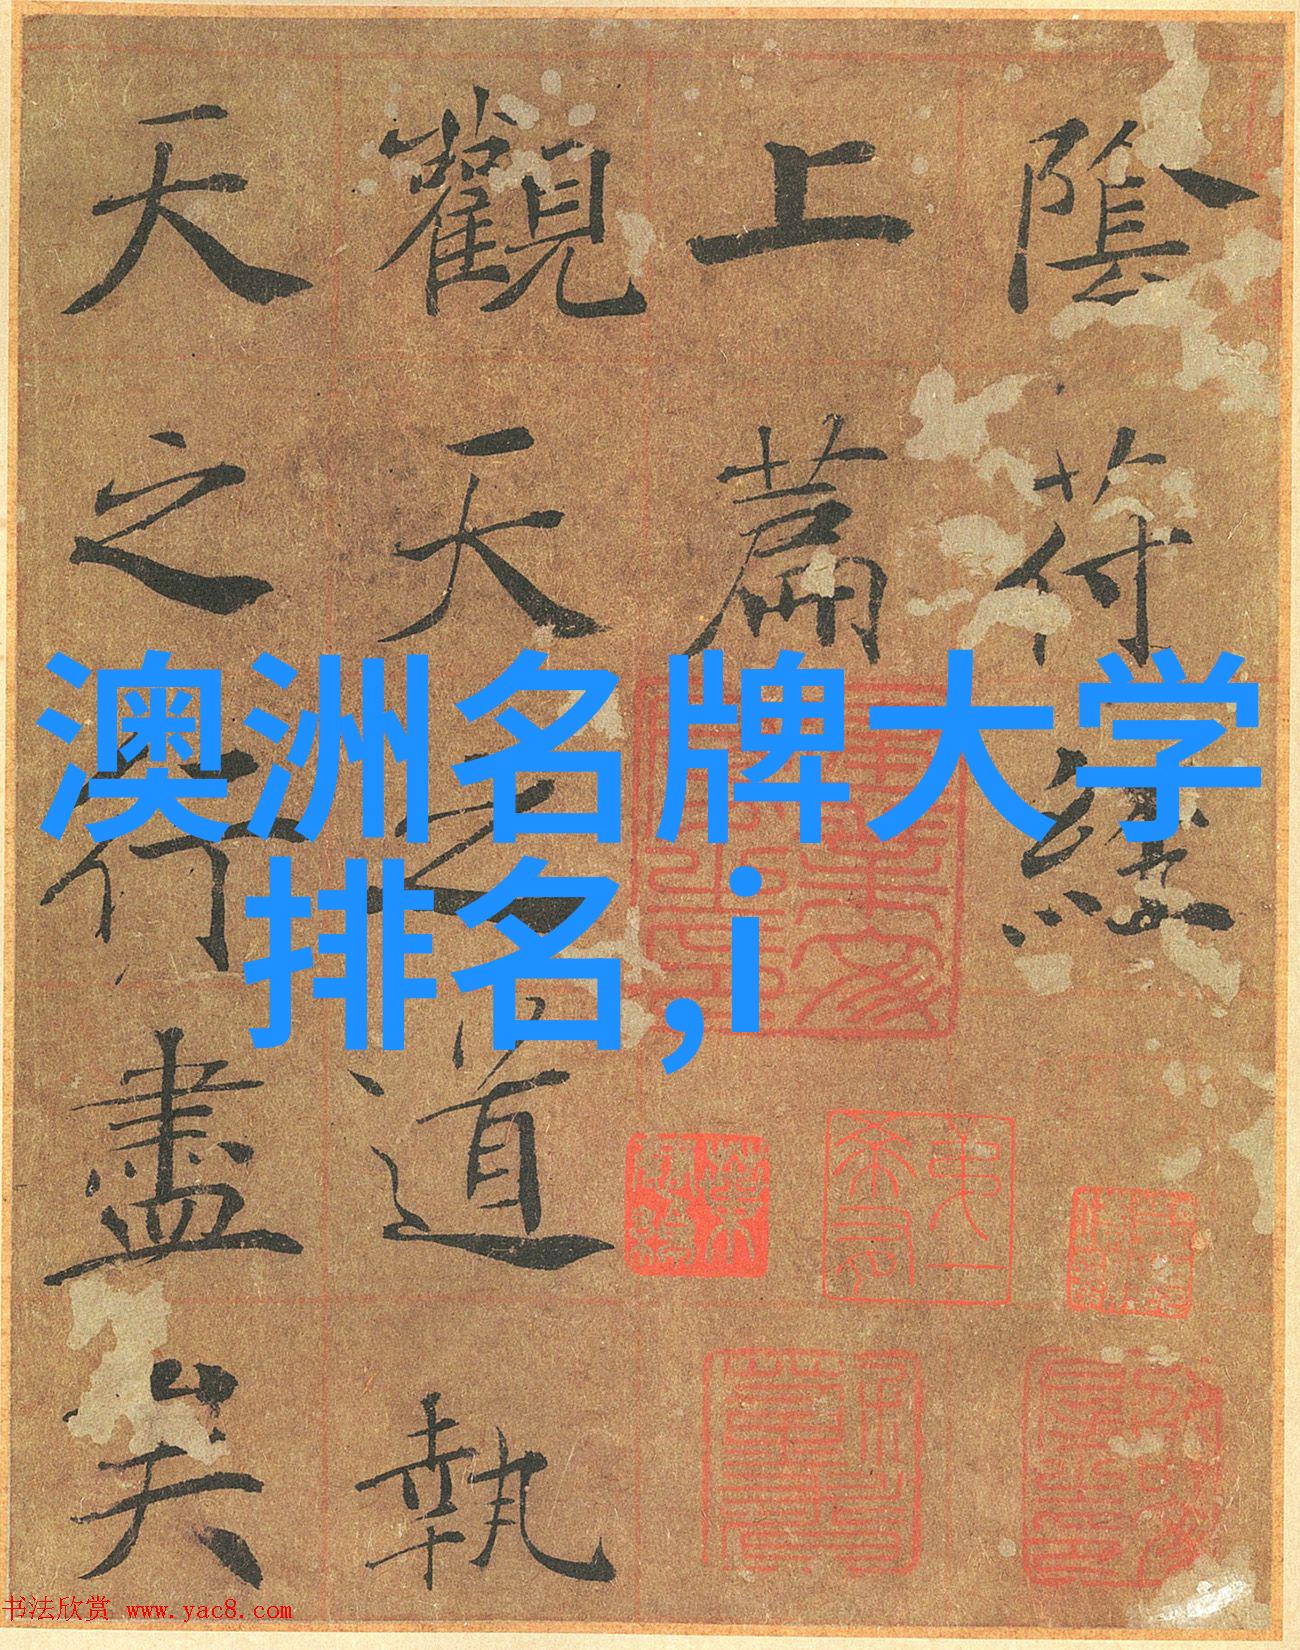 陰符經
上篇
觀天之道執
天之行盡矣
澳洲名牌大学
排名,i
书法欣赏 www.yac8.com